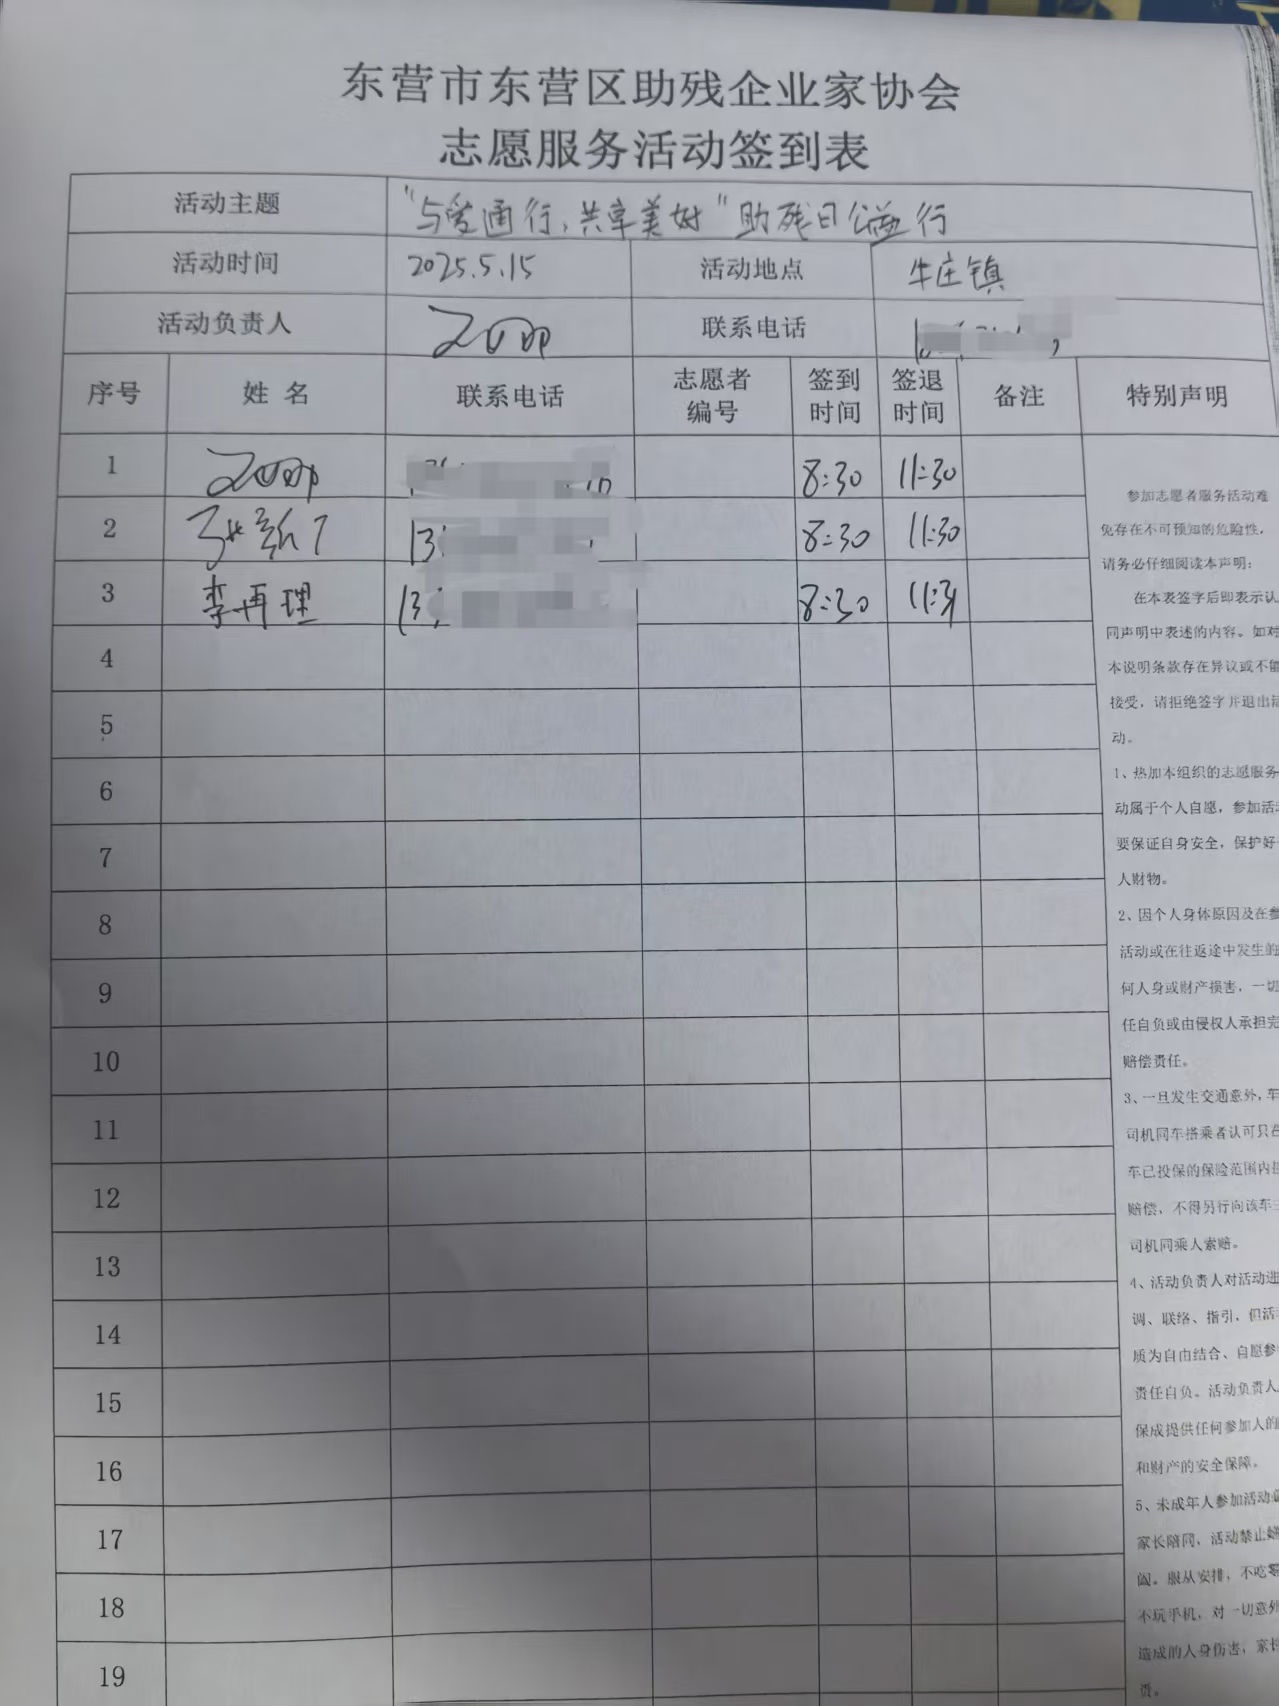 东营市东营区助残企业家协会
志愿服务活动签到表
活动主题 "与爱通行,共享美好"助残日公益行
活动时间 2025.5.15 活动地点 牛庄镇
活动负责人 联系电话
序号 姓名 联系电话 志愿者编号 签到时间 签退时间 备注 特别声明
1 8:30 11:30
2 13 8:30 11:30
3 李再理 13 8:30 11:31
4
5
6
7
8
9
10
11
12
13
14
15
16
17
18
19
参加志愿者服务活动难
免存在不可预知的危险性,
请务必仔细阅读本声明:
在本表签字后即表示认
同声明中表述的内容。如对
本说明条款存在异议或不能
接受,请拒绝签字并退出活
动。
1、热加本组织的志愿服务
动属于个人自愿,参加活
要保证自身安全,保护好
人财物。
2、因个人身体原因及在参
活动或在往返途中发生的
何人身或财产损害,一切
任自负或由侵权人承担完
赔偿责任。
3、一旦发生交通意外,车
司机同车搭乘者认可只在
车已投保的保险范围内
赔偿,不得另行向该车
司机同乘人索赔。
4、活动负责人对活动进
调、联络、指引,但活
质为自由结合、自愿参
责任自负。活动负责人
保成提供任何参加人的
和财产的安全保障。
5、未成年人参加活动
家长陪同,活动禁止
服从安排,不吃零
不玩手机,对一切意外
造成的人身伤害,家长
责。